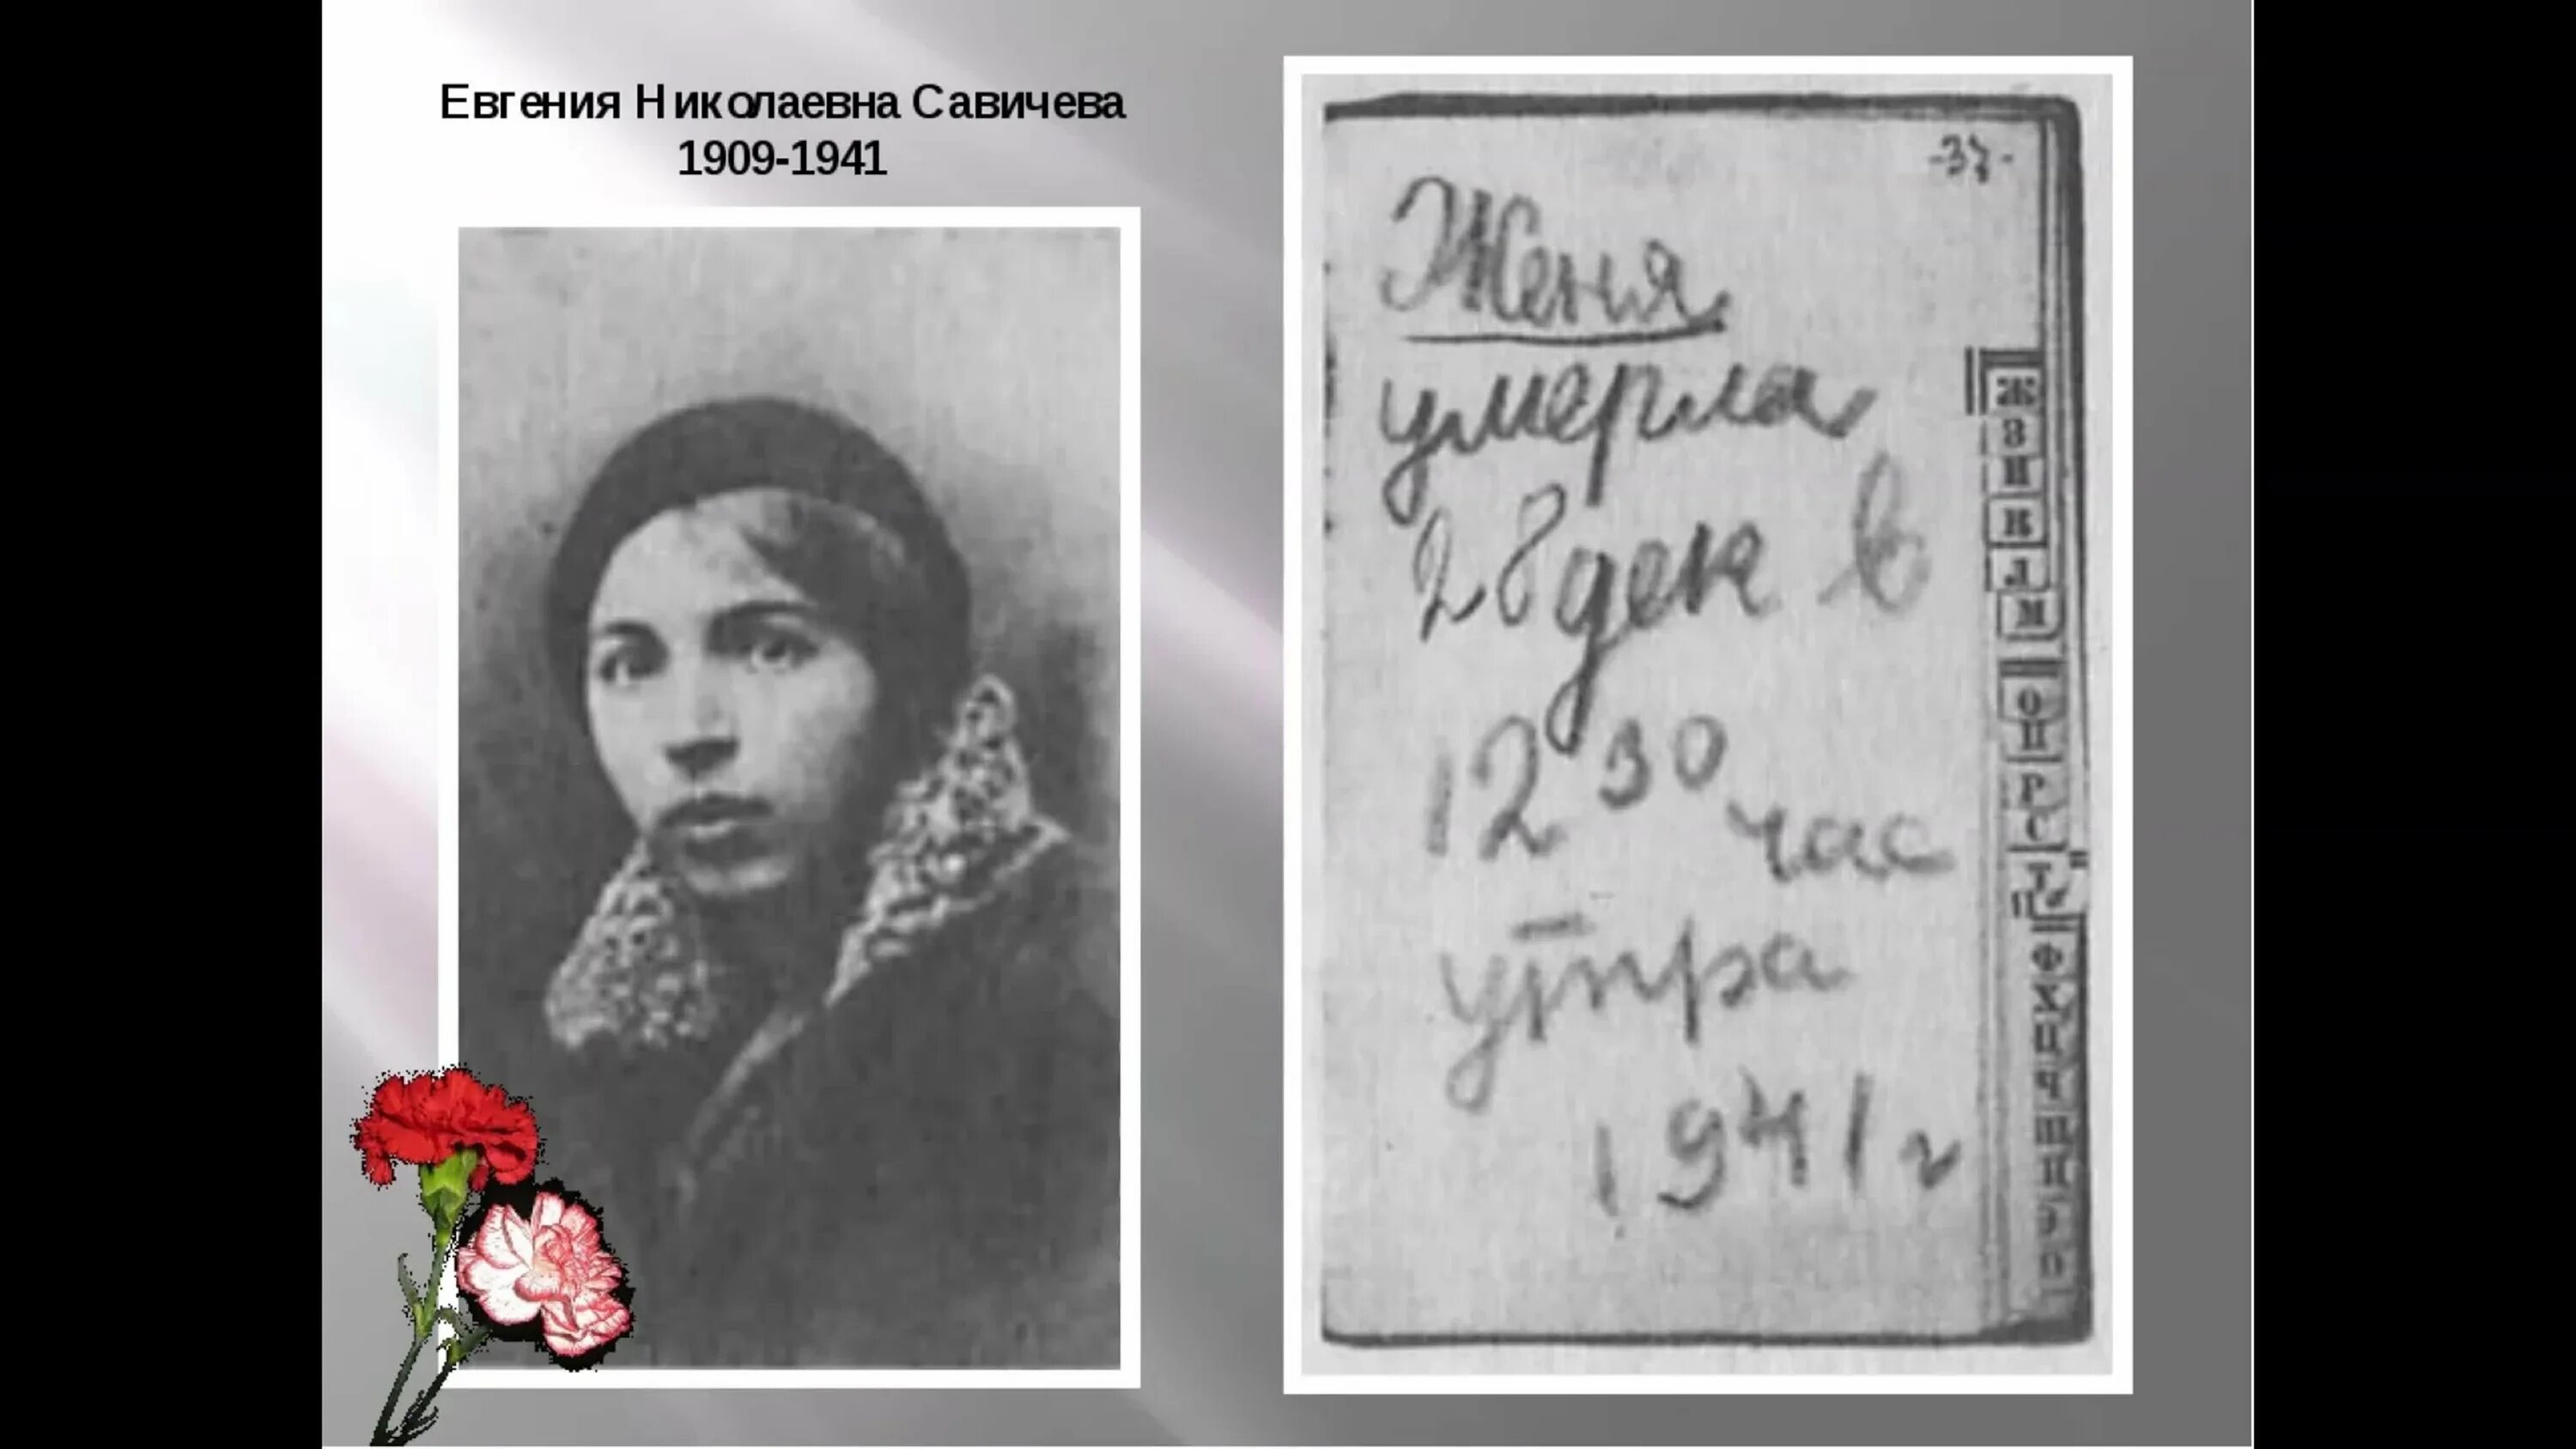 Евгения Николаевна Савичева
1909-1941
-37-
Женя
умерла
28 дек в
12 30 час
утра
1941 г
Ж
З
И
К
Л
М
О
П
Р
С
Т
У
Ф
Х
Ц
Ч
Ш
Щ